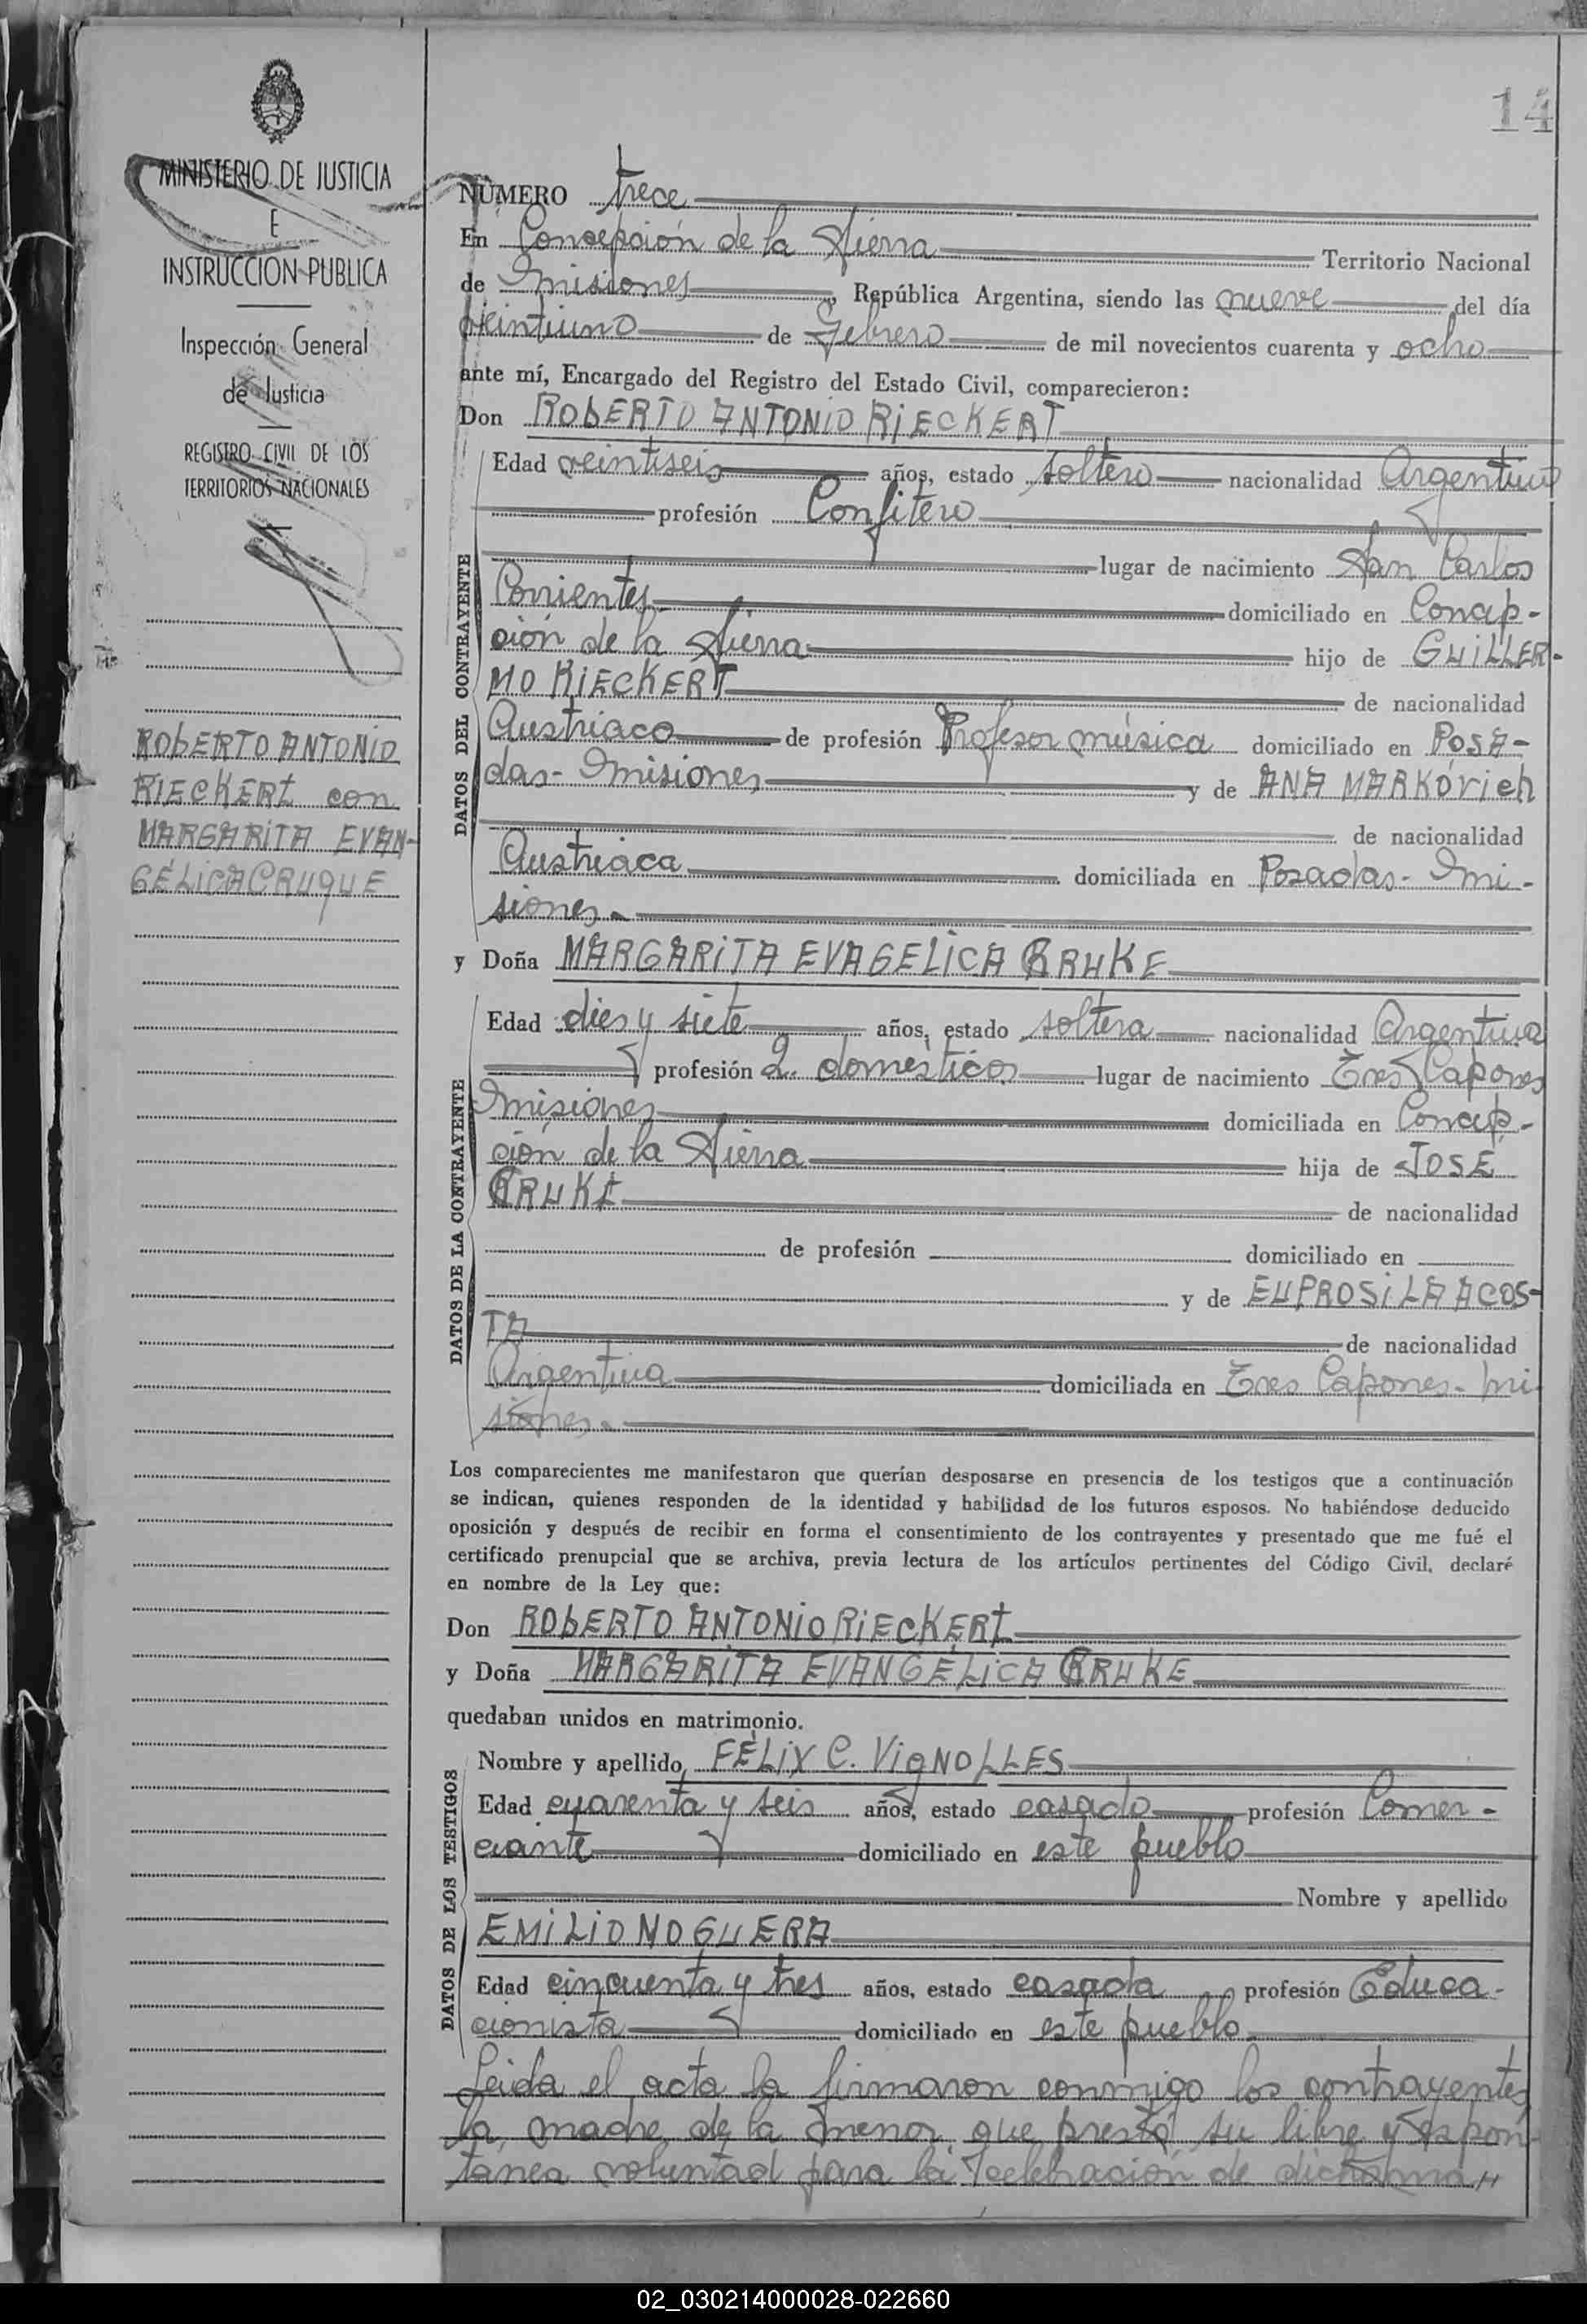 14
MINISTERIO DE JUSTICIA
E
INSTRUCCION PUBLICA
Inspección General
de Justicia
REGISTRO CIVIL DE LOS
TERRITORIOS NACIONALES
ROBERTO ANTONIO
RIECKERT con
MARGARITA EVAN-
GÉLICA CRUQUE
NUMERO trece
En Concepción de la Sierra Territorio Nacional
de Misiones, República Argentina, siendo las nueve del día
Veintiuno de Febrero de mil novecientos cuarenta y ocho
ante mí, Encargado del Registro del Estado Civil, comparecieron:
Don ROBERTO ANTONIO RIECKERT
DATOS DEL CONTRAYENTE
Edad veintiseis años, estado soltero nacionalidad Argentino
profesión Confitero
lugar de nacimiento San Carlos
Corrientes domiciliado en Concep-
ción de la Sierra hijo de GUILLER-
MO RIECKERT de nacionalidad
Austriaco de profesión Profesor música domiciliado en POSA-
das- Misiones y de ANA MARKóvich
de nacionalidad
Austriaca domiciliada en Posadas- Mi-
siones.-
y Doña MARGARITA EVAGELICA CRUKE
DATOS DE LA CONTRAYENTE
Edad dies y siete años, estado soltera nacionalidad Argentina
profesión Q. domésticos lugar de nacimiento Tres Capones
Misiones domiciliada en Concep-
ción de la Sierra hija de JOSÉ
CRUKE de nacionalidad
de profesión domiciliado en
y de EUPROSILA ACOS-
TA de nacionalidad
Argentina domiciliada en Tres Capones- Mi-
siones.-
Los comparecientes me manifestaron que querían desposarse en presencia de los testigos que a continuación
se indican, quienes responden de la identidad y habilidad de los futuros esposos. No habiéndose deducido
oposición y después de recibir en forma el consentimiento de los contrayentes y presentado que me fué el
certificado prenupcial que se archiva, previa lectura de los artículos pertinentes del Código Civil, declaré
en nombre de la Ley que:
Don ROBERTO ANTONIO RIECKERT
y Doña MARGARITA EVANGÉLICA CRUKE
quedaban unidos en matrimonio.
DATOS DE LOS TESTIGOS
Nombre y apellido FÉLIX C. VIGNOLLES
Edad cuarenta y seis años, estado casado profesión Comer-
ciante domiciliado en este pueblo
Nombre y apellido
EMILIO NOGUERA
Edad cincuenta y tres años, estado casado profesión Educa-
cionista domiciliado en este pueblo.
Leida el acta la firmaron conmigo los contrayentes,
la madre de la menor que prestó su libre y espon-
tanea voluntad para la celebración de dicho
02_030214000028-022660